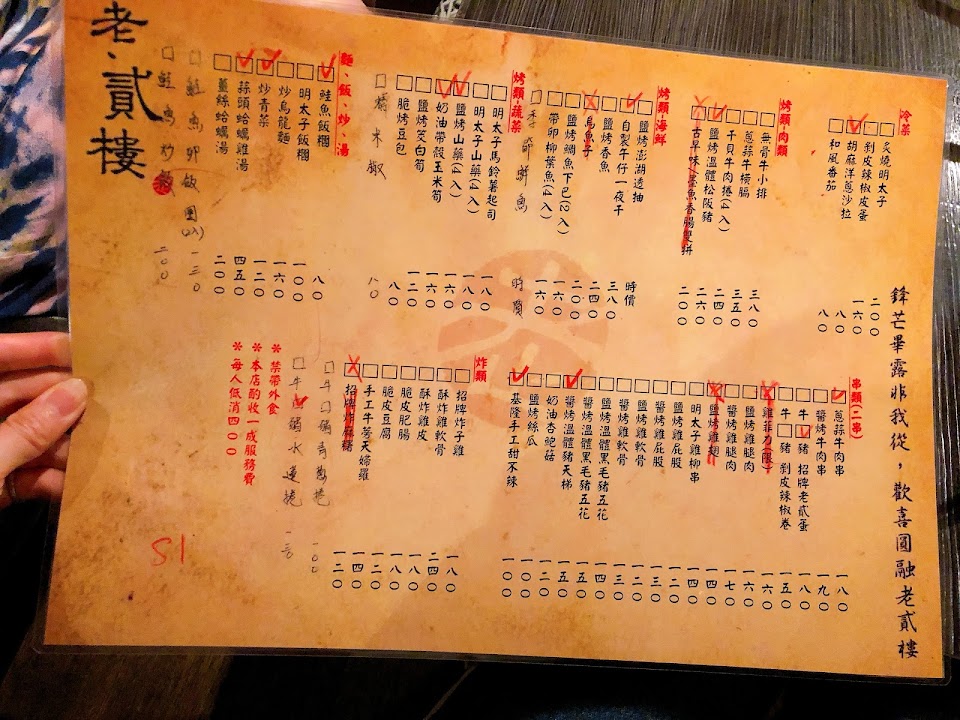 鋒芒畢露非我從，歡喜圓融老貳樓
冷菜
炙燒明太子 二〇〇
剝皮辣椒皮蛋 一六〇
胡麻洋蔥沙拉 八〇
和風番茄 八〇
烤類肉類
無骨牛小排 三八〇
蔥蒜牛橫膈 三五〇
干貝牛肉捲(4入) 二四〇
鹽烤溫體松阪豬 二六〇
古早味/墨魚香腸雙拼 二〇〇
烤類海鮮
鹽烤澎湖透抽 時價
自製牛仔一夜干 三八〇
鹽烤香魚 二四〇
烏魚子 二〇〇
鹽烤鯛魚下巴(2入) 一六〇
帶卵柳葉魚(4入) 一六〇
季節鮮魚 時價
烤類蔬菜
明太子馬鈴薯起司 一八〇
明太子山藥(4入) 一八〇
鹽烤山藥(4入) 一六〇
奶油帶殼玉米筍 一六〇
鹽烤茭白筍 一二〇
脆烤豆包 八〇
糯米椒 八〇
麵、飯、炒、湯
鮭魚飯糰 八〇
明太子飯糰 一〇〇
炒烏龍麵 一六〇
炒青菜 一二〇
蒜頭蛤蠣雞湯 四五〇
薑絲蛤蠣湯 二〇〇
鮭魚卵飯團(2入) 一三〇
鮭魚炒飯 二〇〇
老、貳樓
串類(二串)
蔥蒜牛肉串 一八〇
醬烤牛肉串 一九〇
牛 豬 招牌老貳蛋 一八〇
牛 豬 剝皮辣椒卷 一五〇
雞菲力(限) 一六〇
鹽烤雞腿肉 一六〇
醬烤雞腿肉 一七〇
鹽烤雞翅 一四〇
明太子雞柳串 一四〇
鹽烤雞屁股 一二〇
醬烤雞屁股 一三〇
鹽烤雞軟骨 一二〇
醬烤雞軟骨 一三〇
鹽烤溫體黑毛豬五花 一四〇
醬烤溫體黑毛豬五花 一五〇
醬烤溫體豬天梯 一五〇
奶油杏鮑菇 一二〇
鹽烤絲瓜 一〇〇
基隆手工甜不辣 一〇〇
炸類
招牌炸子雞 一八〇
酥炸雞軟骨 二四〇
酥炸雞皮 一八〇
脆皮肥腸 一八〇
脆皮豆腐 一二〇
手工牛蒡天婦羅 一四〇
招牌炸麻糬 一二〇
一〇〇
水蓮捲 一三〇
＊禁帶外食
＊本店酌收一成服務費
＊每人低消四〇〇
S1